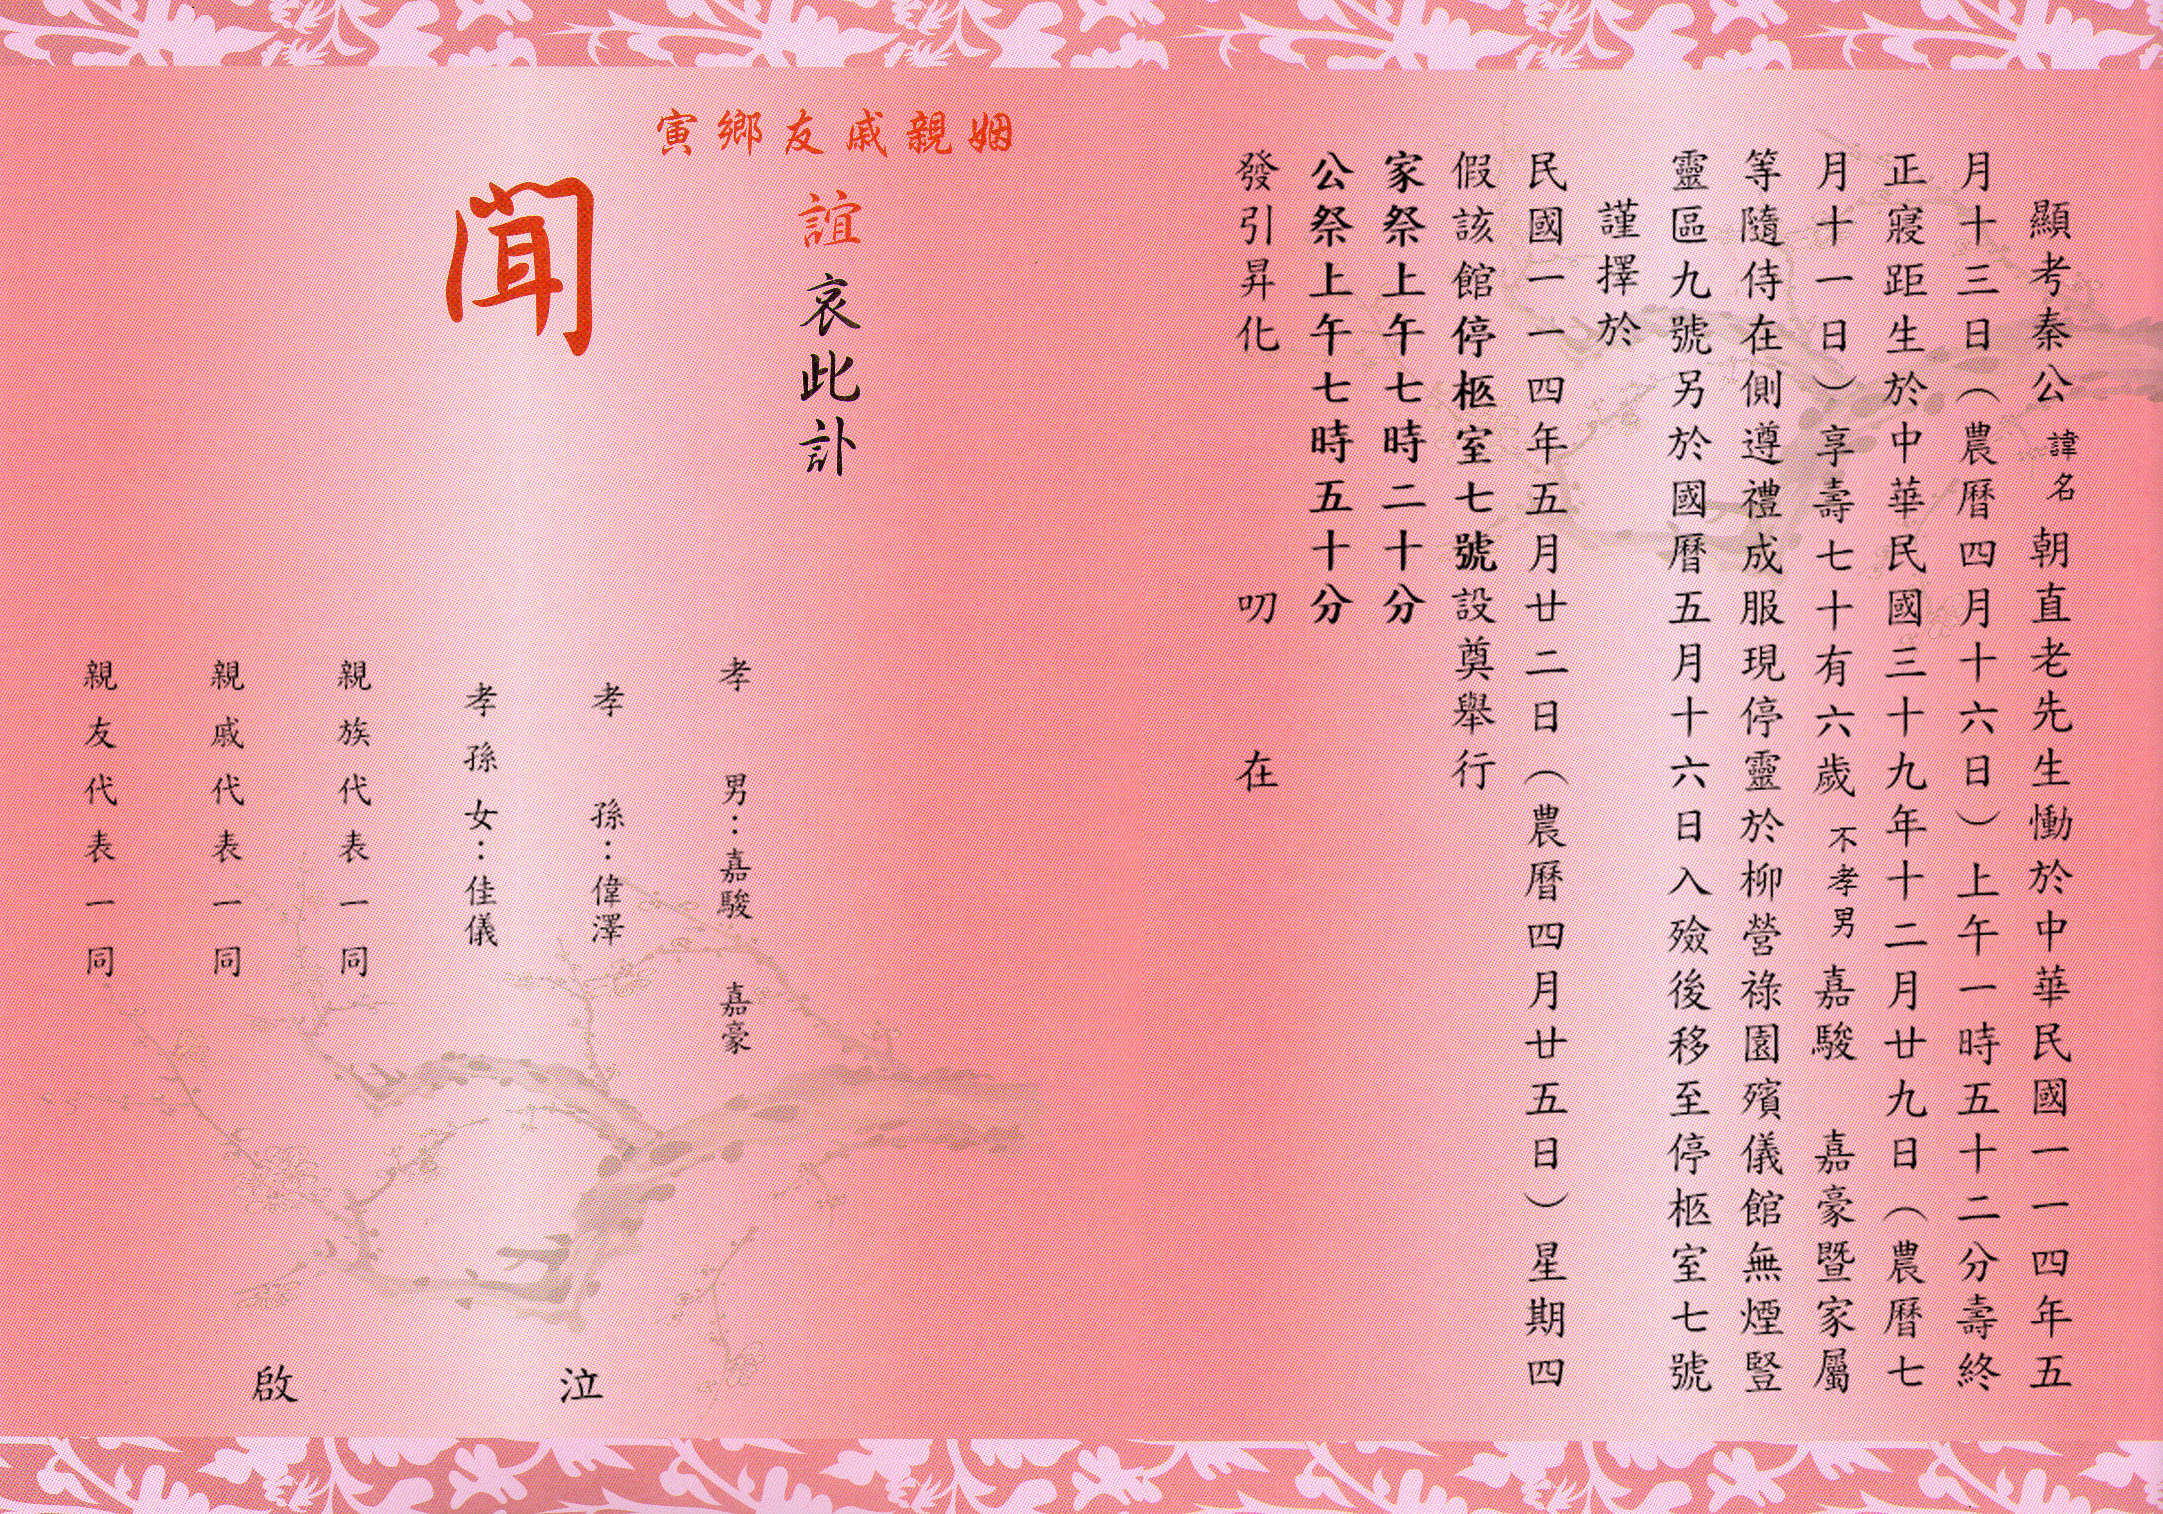 顯考秦公 諱名 朝直老先生慟於中華民國一一四年五
月十三日（農曆四月十六日）上午一時五十二分壽終
正寢距生於中華民國三十九年十二月廿九日（農曆七
月十一日）享壽七十有六歲 不孝男 嘉駿 嘉豪暨家屬
等隨侍在側遵禮成服現停靈於柳營祿園殯儀館無煙豎
靈區九號另於國曆五月十六日入殮後移至停柩室七號
謹擇於
民國一一四年五月廿二日（農曆四月廿五日）星期四
假該館停柩室七號設奠舉行
家祭上午七時二十分
公祭上午七時五十分
發引昇化 叨 在
姻親戚友鄉寅
誼 哀此訃
聞
孝 男：嘉駿 嘉豪
孝 孫：偉澤
孝孫女：佳儀
親族代表一同
親戚代表一同
親友代表一同
泣 啟